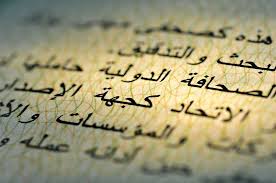 هذه كصحفي
البحث والتدقيق.
الصحافة الدولية حاملي
الاتحاد كجهة الإصدار
كات والمؤسسات والأ
عمله و